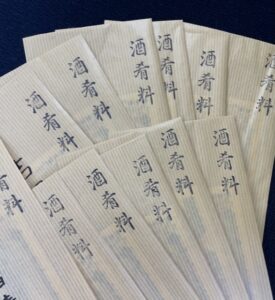 酒肴料
酒肴料
酒肴料
酒肴料
酒肴料
酒肴料
料
酒肴料
酒肴料
酒肴料
酒肴料
酒肴料